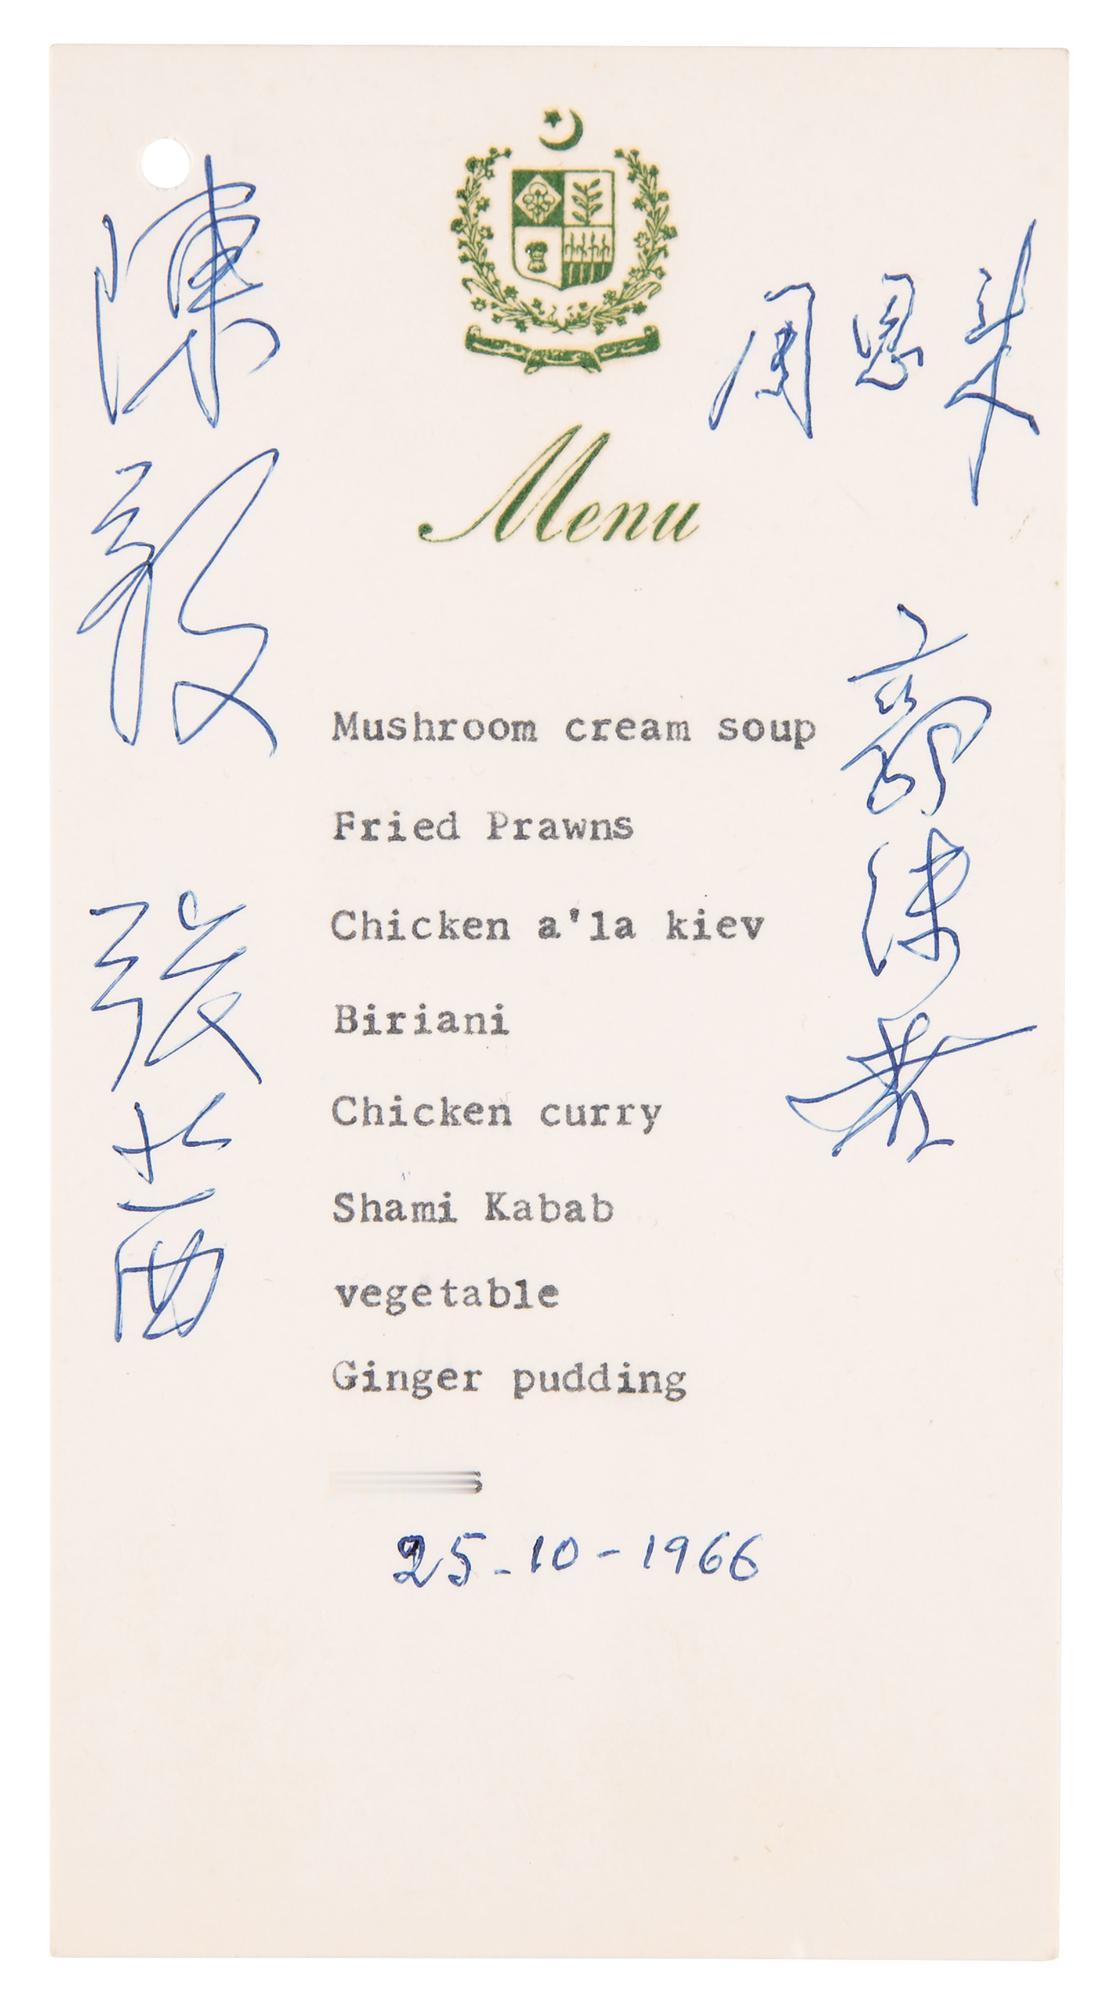 陳毅
周恩来
Menu
郭沫若
張茜
Mushroom cream soup
Fried Prawns
Chicken a'la kiev
Biriani
Chicken curry
Shami Kabab
vegetable
Ginger pudding
25-10-1966